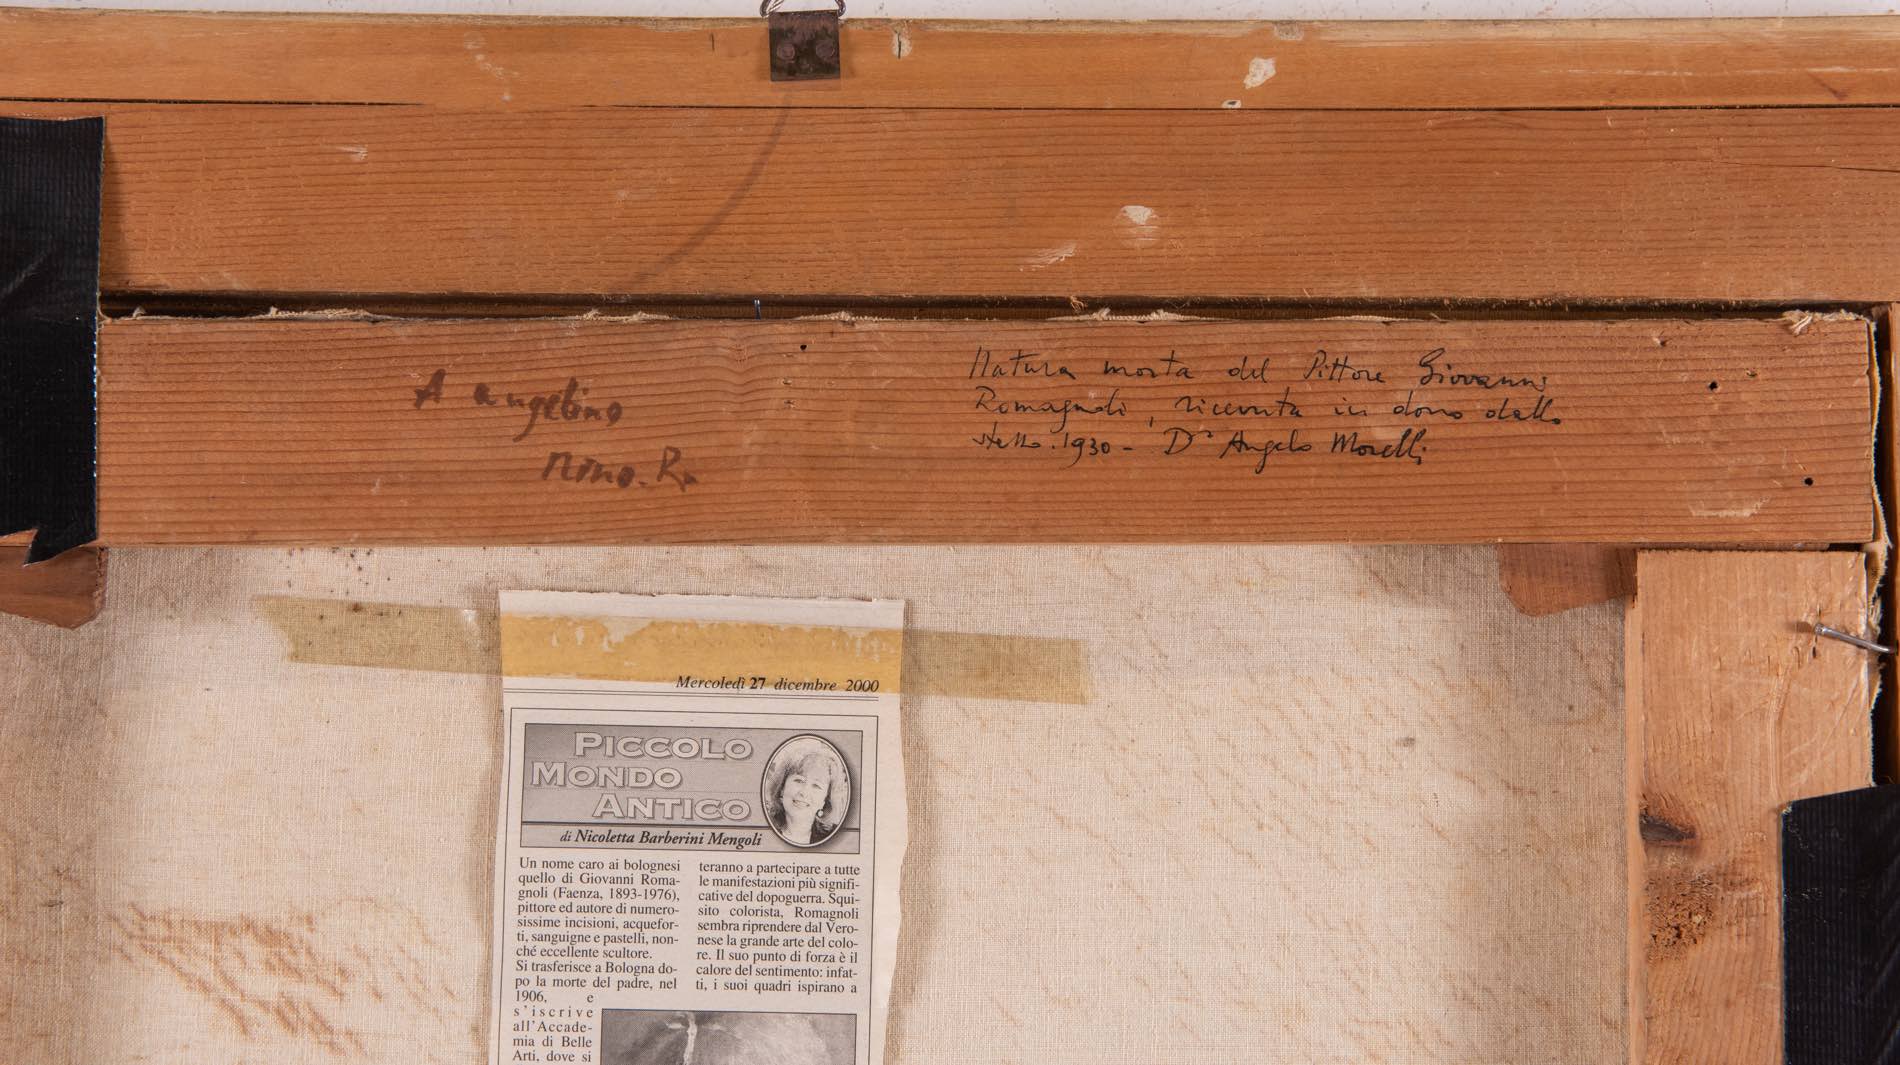 A angelino
nino. R.
Natura morta del Pittore Giovanni
Romagnoli, ricevuta in dono dallo
stesso. 1930 - Dr Angelo Morelli
Mercoledì 27 dicembre 2000
PICCOLO
MONDO
ANTICO
di Nicoletta Barberini Mengoli
Un nome caro ai bolognesi
quello di Giovanni Roma-
gnoli (Faenza, 1893-1976),
pittore ed autore di numero-
sissime incisioni, acquefor-
ti, sanguigne e pastelli, non-
ché eccellente scultore.
Si trasferisce a Bologna do-
po la morte del padre, nel
1906, e
s'iscrive
all'Accade-
mia di Belle
Arti, dove si
teranno a partecipare a tutte
le manifestazioni più signifi-
cative del dopoguerra. Squi-
sito colorista, Romagnoli
sembra riprendere dal Vero-
nese la grande arte del colo-
re. Il suo punto di forza è il
calore del sentimento: infat-
ti, i suoi quadri ispirano a